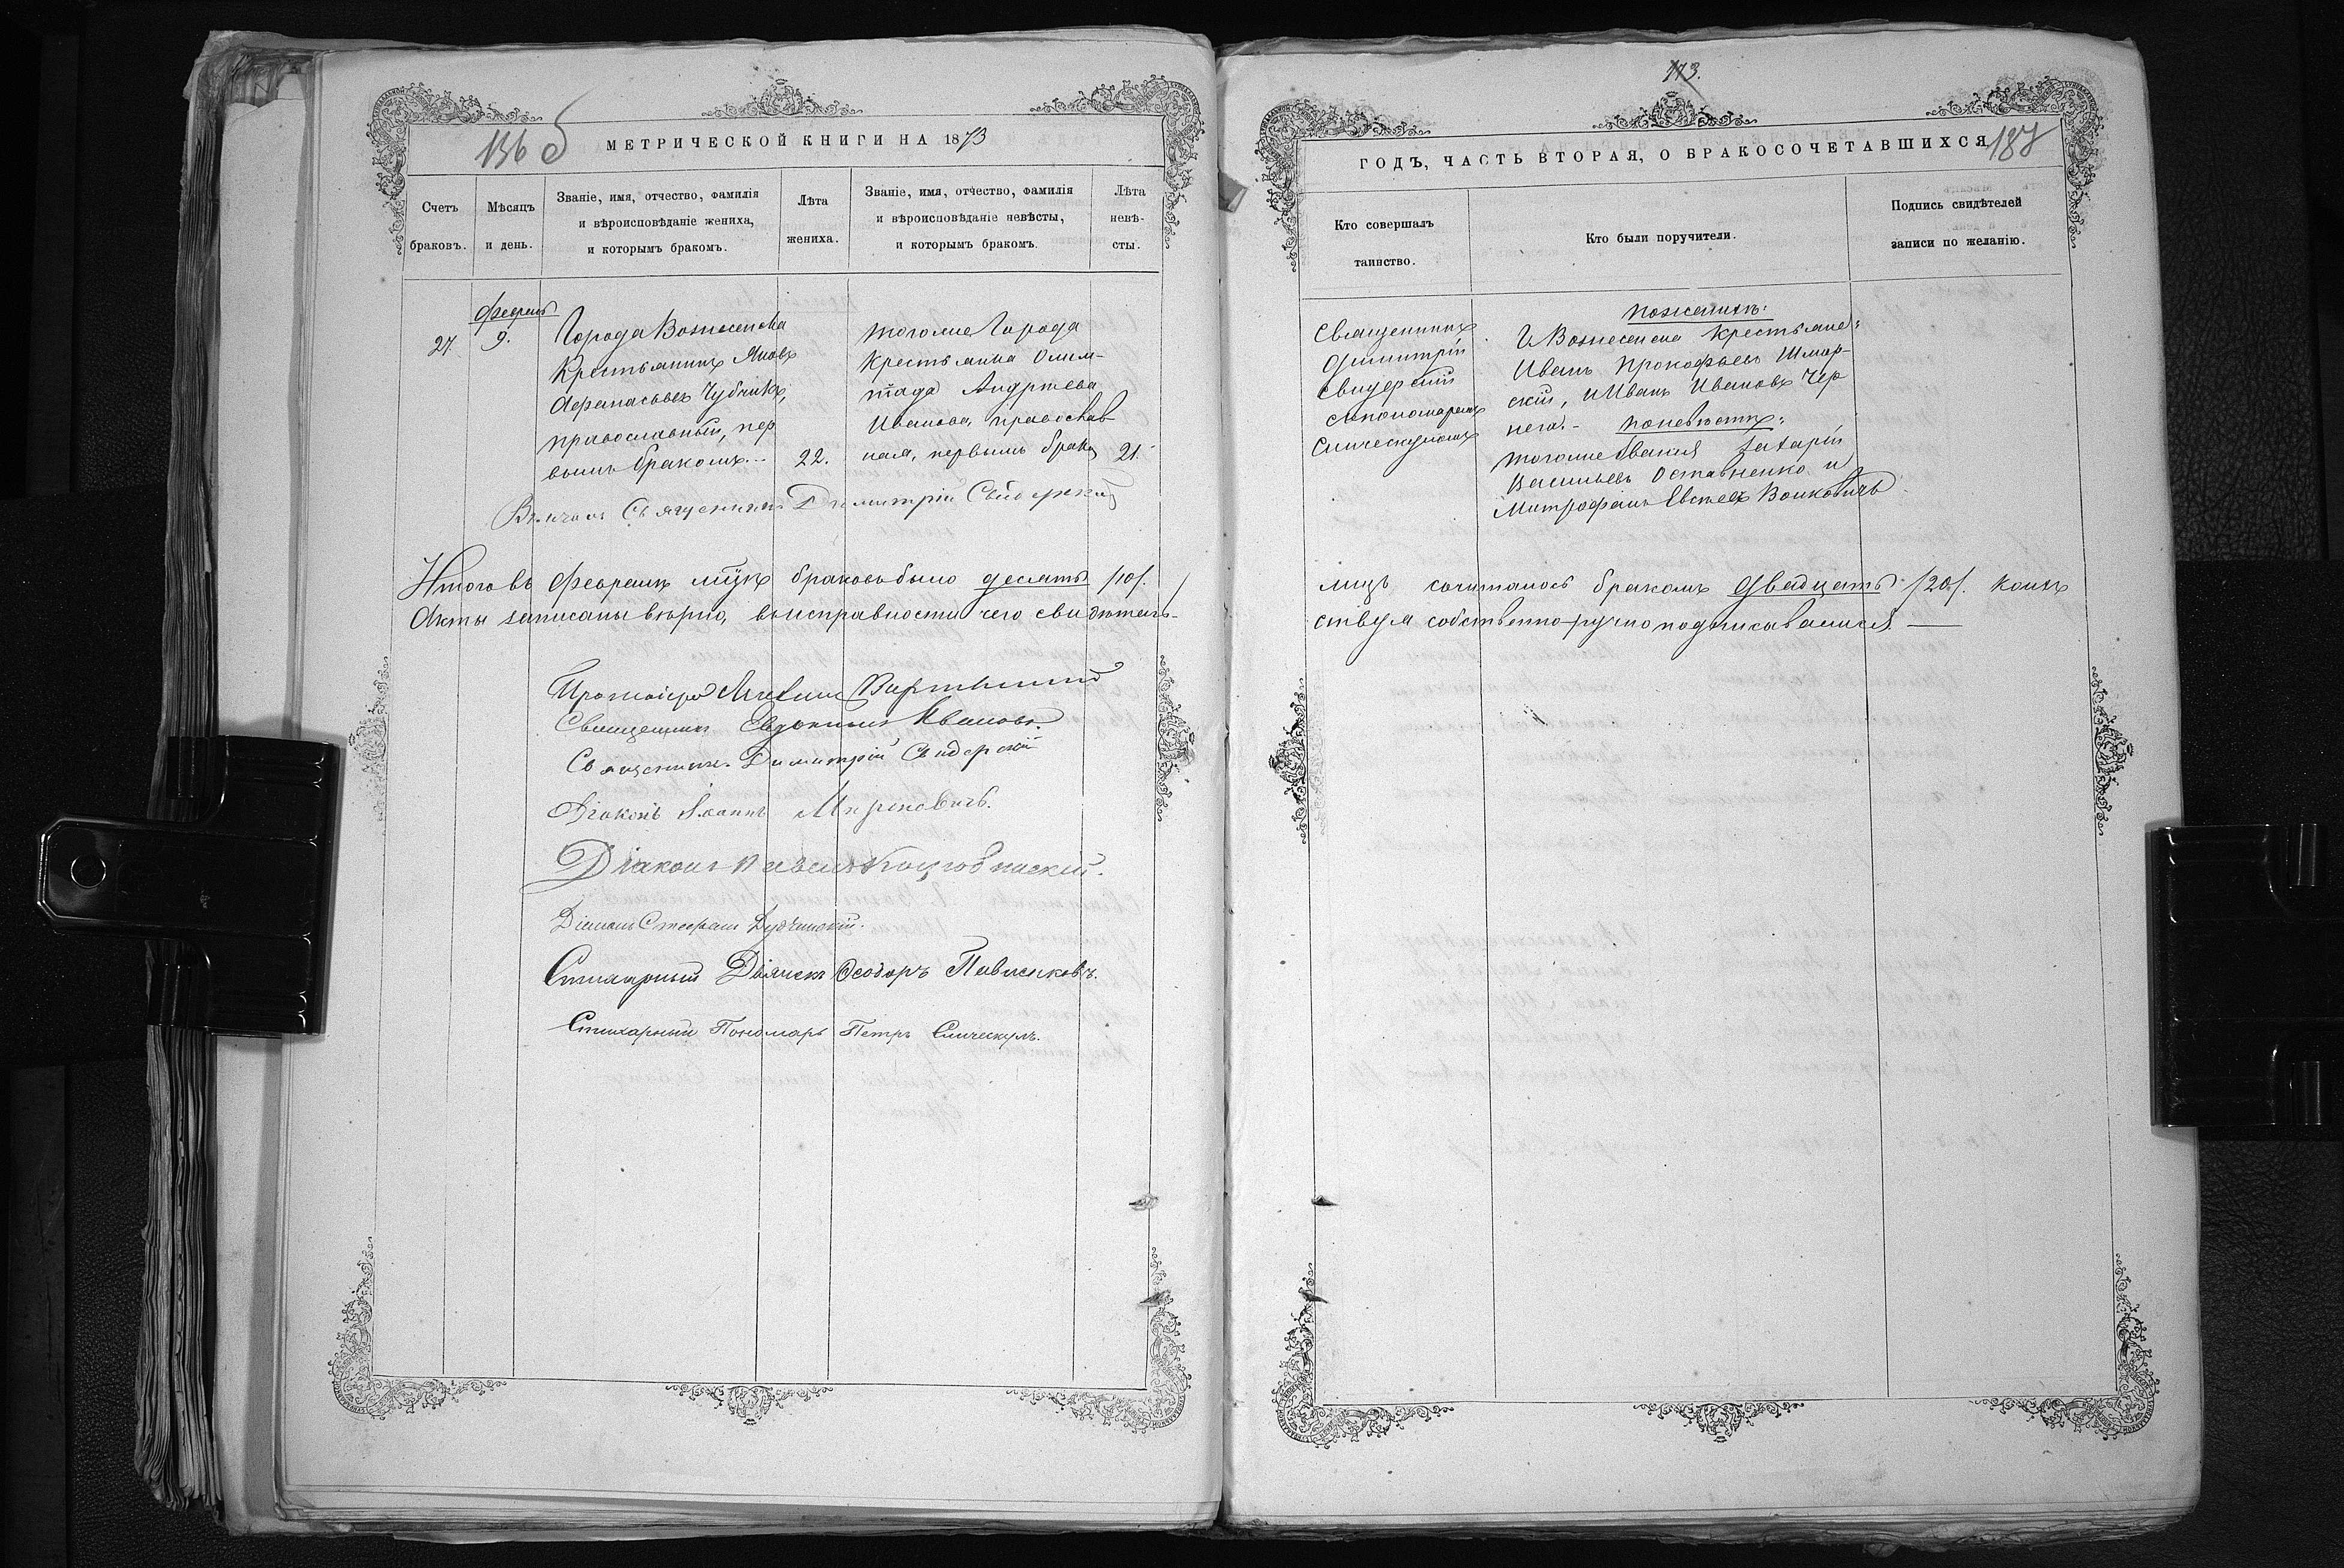 136 б
МЕТРИЧЕСКОЙ КНИГИ НА 1873
Счетъ браковъ.
Мѣсяцъ и день.
Званіе, имя, отчество, фамилія
и вѣроисповѣданіе жениха,
и которымъ бракомъ.
Лѣта жениха.
Званіе, имя, отчество, фамилія
и вѣроисповѣданіе невѣсты,
и которымъ бракомъ.
Лѣта невѣ-
сты.
27.
9.
Города Вознесенска
Крестьянинъ Яковъ
Афанасьевъ Чубчикъ,
православный, пер
вымъ бракомъ
22.
тогоже Города
Крестьянка Олим-
піада Андреева
Иванова, православ
ная, первымъ брако
21.
Вѣнчалъ Священникъ Димитрій Свидерскій
Итого въ Февралѣ мцѣ браковъ было десять /10/.
Акты записаны вѣрно, въ исправности чего свидѣтель-
Протоіерей
Священникъ Евдокимъ Ивановъ.
Священникъ Димитрій Свидерскій
Діаконъ Іоаннъ
Діаконъ
Діаконъ Стефанъ
Стихарный Дьячекъ Ѳеодоръ Павленковъ.
Стихарный Пономарь Петръ Слическулъ.
113.
187
ГОДЪ, ЧАСТЬ ВТОРАЯ, О БРАКОСОЧЕТАВШИХСЯ
Кто совершалъ
таинство.
Кто были поручители.
Подпись свидѣтелей
записи по желанію.
Священникъ
Димитрій
Свидерскій
съ пономаремъ
Слическуломъ
по женихѣ:
Г. Вознесенска Крестьяне:
Иванъ Прокофьевъ Шмар-
скій, и Иванъ Ивановъ Чер
по невѣстѣ:
тогоже званія Захарій
Васильевъ Оставненко и
Митрофанъ Войковичъ
лицъ сочиталось бракомъ двадцать /20/. коихъ
ствуя собственноручно подписываемся.